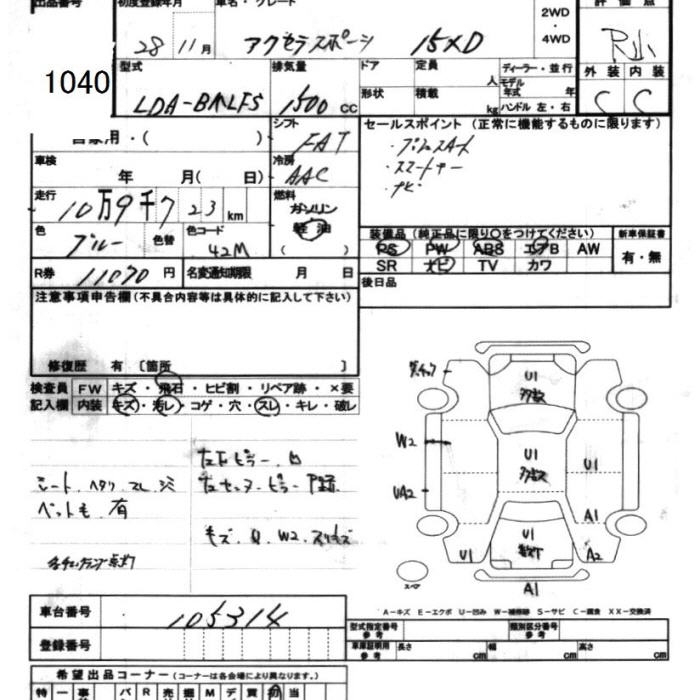 出品番号 初度登録年月 車名・グレード 2WD 評価点
28 11月 アクセラスポーツ 15XD 4WD R小
1040
型式 排気量 ドア 定員 人 ディーラー・並行 外装 内装
モデル年式 年
LDA-BMLFS 1500 CC 形状 積載 kg ハンドル 左・右 C C
自家用・( ) シフト FAT セールスポイント (正常に機能するものに限ります)
・プッシュスタート
車検 冷房 AAC ・スマートキー
年 月( 日) ・ナビ
走行 10万9千723km 燃料 ガソリン
軽油
色 ブルー 色替 色コード 42M ( )
装備品 (純正品に限り○をつけてください) 新車保証書
PS PW ABS エアB AW 有・無
SR ナビ TV カワ
R券 11070円 名変通知期限 月 日 後日品
注意事項申告欄 (不具合内容等は具体的に記入して下さい)
修復歴 有 〔箇所 〕
検査員 FW キズ・飛石・ヒビ割・リペア跡・×要
記入欄 内装 キズ・汚レ・コゲ・穴・スレ・キレ・破レ
シート ヘタリ スレ シミ
ペットも 有
キズ Q W2
U1
W2 U1
UA2 U1
A1
U1 U1 A2
スペア A1
A-キズ E-エクボ U-凹み W-補修跡 S-サビ C-腐食 XX-交換済
車台番号 105314
登録番号
型式指定番号 参考 類別区分番号 参考
車庫証明用 参考 長さ cm 幅 cm 高さ cm
希望出品コーナー (コーナーは各会場により異なります。)
特 一 事 バ R 売 掘 M デ 貫 初 当